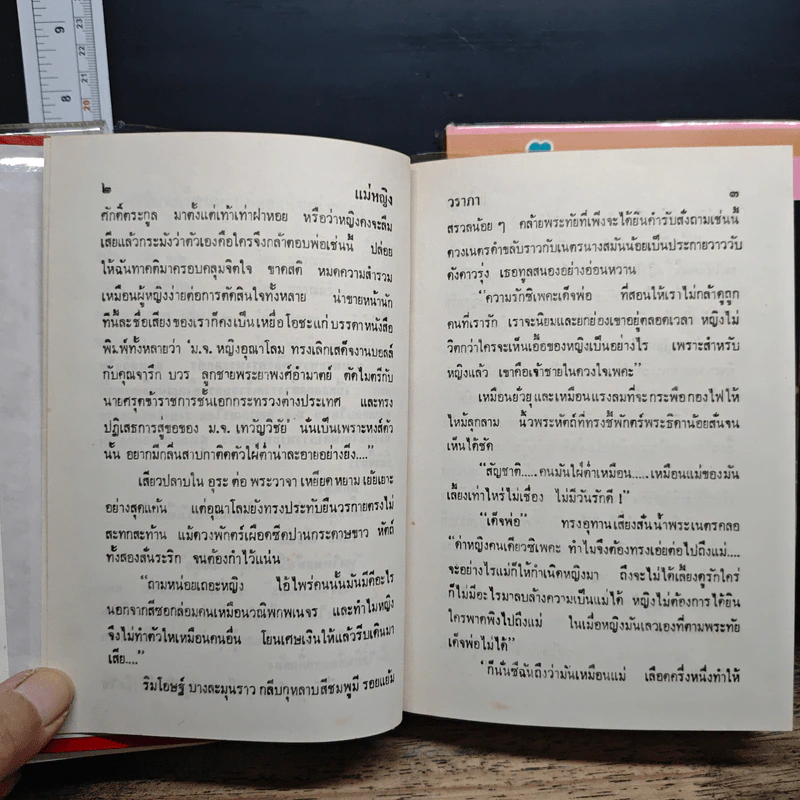 9
8
23
22
21
20
๒ แม่หญิง
ศักดิ์ตระกูล มาตั้งแต่เท้าเท่าฝาหอย หรือว่าหญิงคงจะลืม
เสียแล้วกระมังว่าตัวเองคือใครจึงกล้าตอบพ่อเช่นนี้ ปล่อย
ให้ฉันทาคติมาครอบคลุมจิตใจ ขาดสติ หมดความสำรวม
เหมือนผู้หญิงง่ายต่อการตัดสินใจทั้งหลาย น่าขายหน้านัก
ทีนี้ละชื่อเสียงของเราก็คงเป็นเหยื่อโอชะแก่ บรรดาหนังสือ
พิมพ์ทั้งหลายว่า ‘ม.จ. หญิงอุณาโลม ทรงเลิกเสด็จงานบอลล์
กับคุณจารึก บวร ลูกชายพระยาพงศ์อำมาตย์ ตัดไมตรีกับ
นายศรุตข้าราชการชั้นเอกกระทรวงต่างประเทศ และทรง
ปฏิเสธการสู่ขอของ ม.จ. เทวัญวิชัย’ นั่นเป็นเพราะหงส์ตัว
นั้น อยากมีกลิ่นสาบกาติดตัวใฝ่ต่ำน่าละอายอย่างยิ่ง....”
เสียวปลาบใน อุระ ต่อ พระวาจา เหยียด หยาม เย้ยเยาะ
อย่างสุดแค้น แต่อุณาโลมยังทรงประทับยืนวรกายตรงไม่
สะทกสะท้าน แม้ดวงพักตร์เผือดซีดปานกระดาษขาว หัตถ์
ทั้งสองสั่นระริก จนต้องกำไว้แน่น
“ถามหน่อยเถอะหญิง ไอ้ไพร่คนนั้นมันมีดีอะไร
นอกจากสีซอกล่อมคนเหมือนวณิพกพเนจร และทำไมหญิง
จึงไม่ทำตัวให้เหมือนคนอื่น โยนเศษเงินให้แล้วรีบเดินมา
เสีย....”
ริมโอษฐ์ บางละมุนราว กลีบกุหลาบสีชมพูมี รอยแย้ม
วราภา ๓
สรวลน้อย ๆ คล้ายพระทัยที่เพิ่งจะได้ยินคำรับสั่งถามเช่นนี้
ดวงเนตรดำขลับราวกับเนตรนางสมันน้อยเป็นประกายวาววับ
ดังดาวรุ่ง เธอทูลสนองอย่างอ่อนหวาน
“ความรักซิเพคะเด็จพ่อ ที่สอนให้เราไม่กล้าดูถูก
คนที่เรารัก เราจะนิยมและยกย่องเขาอยู่ตลอดเวลา หญิงไม่
วิตกว่าใครจะเห็นเอื้อของหญิงเป็นอย่างไร เพราะสำหรับ
หญิงแล้ว เขาคือเจ้าชายในดวงใจเพคะ”
เหมือนยั่วยุ และเหมือนแรงลมที่จะ กระพือ กองไฟให้
ไหม้ลุกลาม นิ้วพระหัตถ์ที่ทรงชี้พักตร์พระธิดาน้อยสั่นจน
เห็นได้ชัด
“สัญชาติ.....คนมันใฝ่ต่ำเหมือน.....เหมือนแม่ของมัน
เลี้ยงเท่าไหร่ไม่เชื่อง ไม่มีวันรักดี !”
“เด็จพ่อ” ทรงอุทานเสียงสั่นน้ำพระเนตรคลอ
“ด่าหญิงคนเดียวซิเพคะ ทำไมจึงต้องทรงเอ่ยต่อไปถึงแม่....
จะอย่างไรแม่ก็ให้กำเนิดหญิงมา ถึงจะไม่ได้เลี้ยงดูรักใคร่
ก็ไม่มีอะไรมาลบล้างความเป็นแม่ได้ หญิงไม่ต้องการได้ยิน
ใครพาดพิงไปถึงแม่ ในเมื่อหญิงมันเลวเองที่ตามพระทัย
เด็จพ่อไม่ได้”
‘ก็นั่นซีฉันถึงว่ามันเหมือนแม่ เลือดครึ่งหนึ่งทำให้